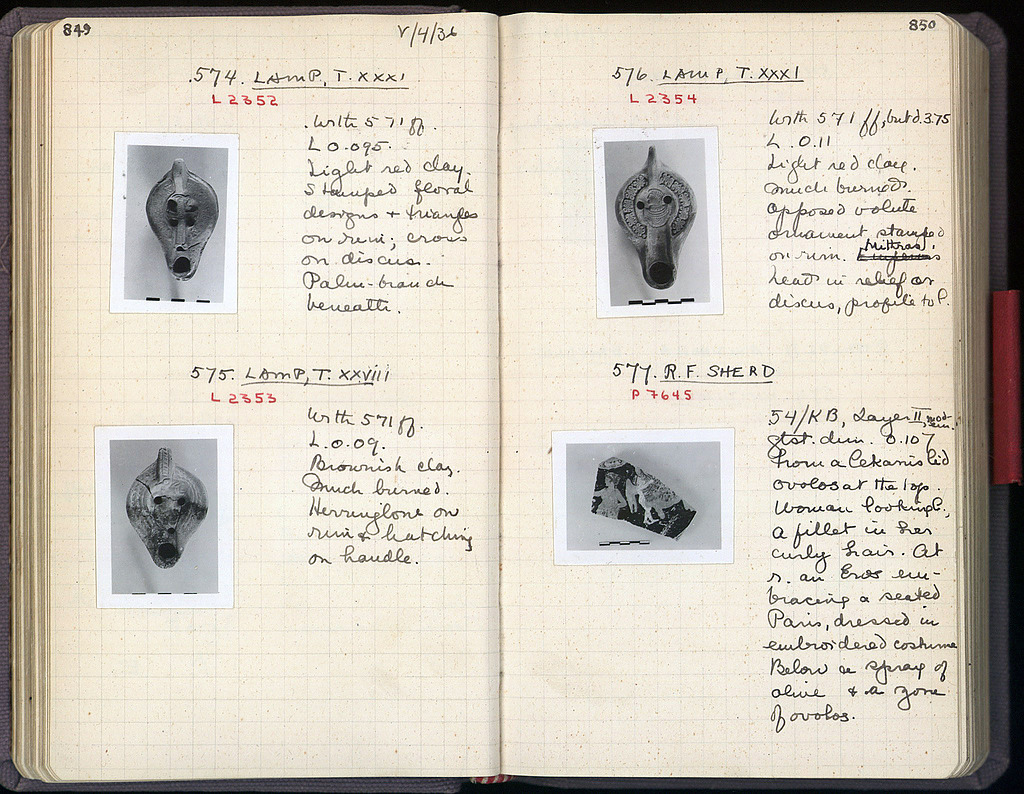 849
V/4/36
574. LAMP, T. XXXI
L 2352
With 571 ff.
L 0.095.
Light red clay.
Stamped floral
designs + triangles
on rim; cross
on discus.
Palm-branch
beneath.
575. LAMP, T. XXVIII
L 2353
With 571 ff.
L. 0.09.
Brownish clay.
Much burned.
Herringbone on
rim & hatching
on handle.
850
576. LAMP, T. XXXI
L 2354
With 571 ff, but d. 3.75
L. 0.11
Light red clay.
Much burned.
Opposed volute
ornament stamped
on rim. Mithras'
head in relief on
discus, profile to l.
577. R.F. SHERD
P 7645
54/KB, Layer II,
gtst. dim. 0.107
From a lekanis lid
ovolos at the top.
Woman looking l.,
a fillet in her
curly hair. At
r. an Eros em-
bracing a seated
Paris, dressed in
embroidered costume
Below a spray of
olive & a zone
of ovolos.